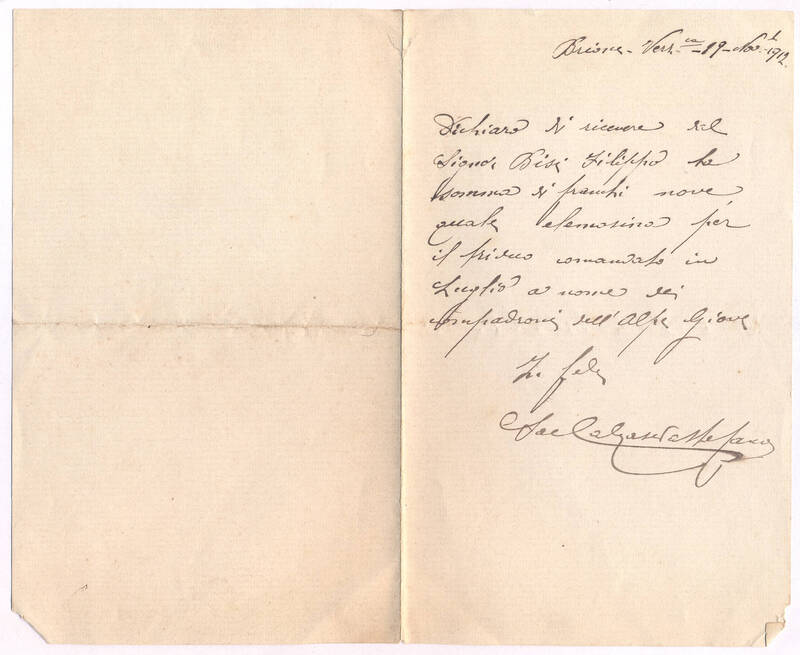 Brione-Verz.ca-19-Nov.1912.
Dichiaro di ricevere dal
Signor Bisi Filippo la
somma di franchi nove
quale elemosina per
il triduo comandato in
Luglio a nome dei
compadroni dell'Alpe Giove
In fede
Sac